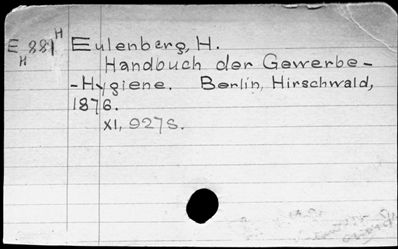 E 881 H
H
Eulenberg, H.
Handbuch der Gewerbe-
-Hygiene. Berlin, Hirschwald,
1876.
XI, 927 S.